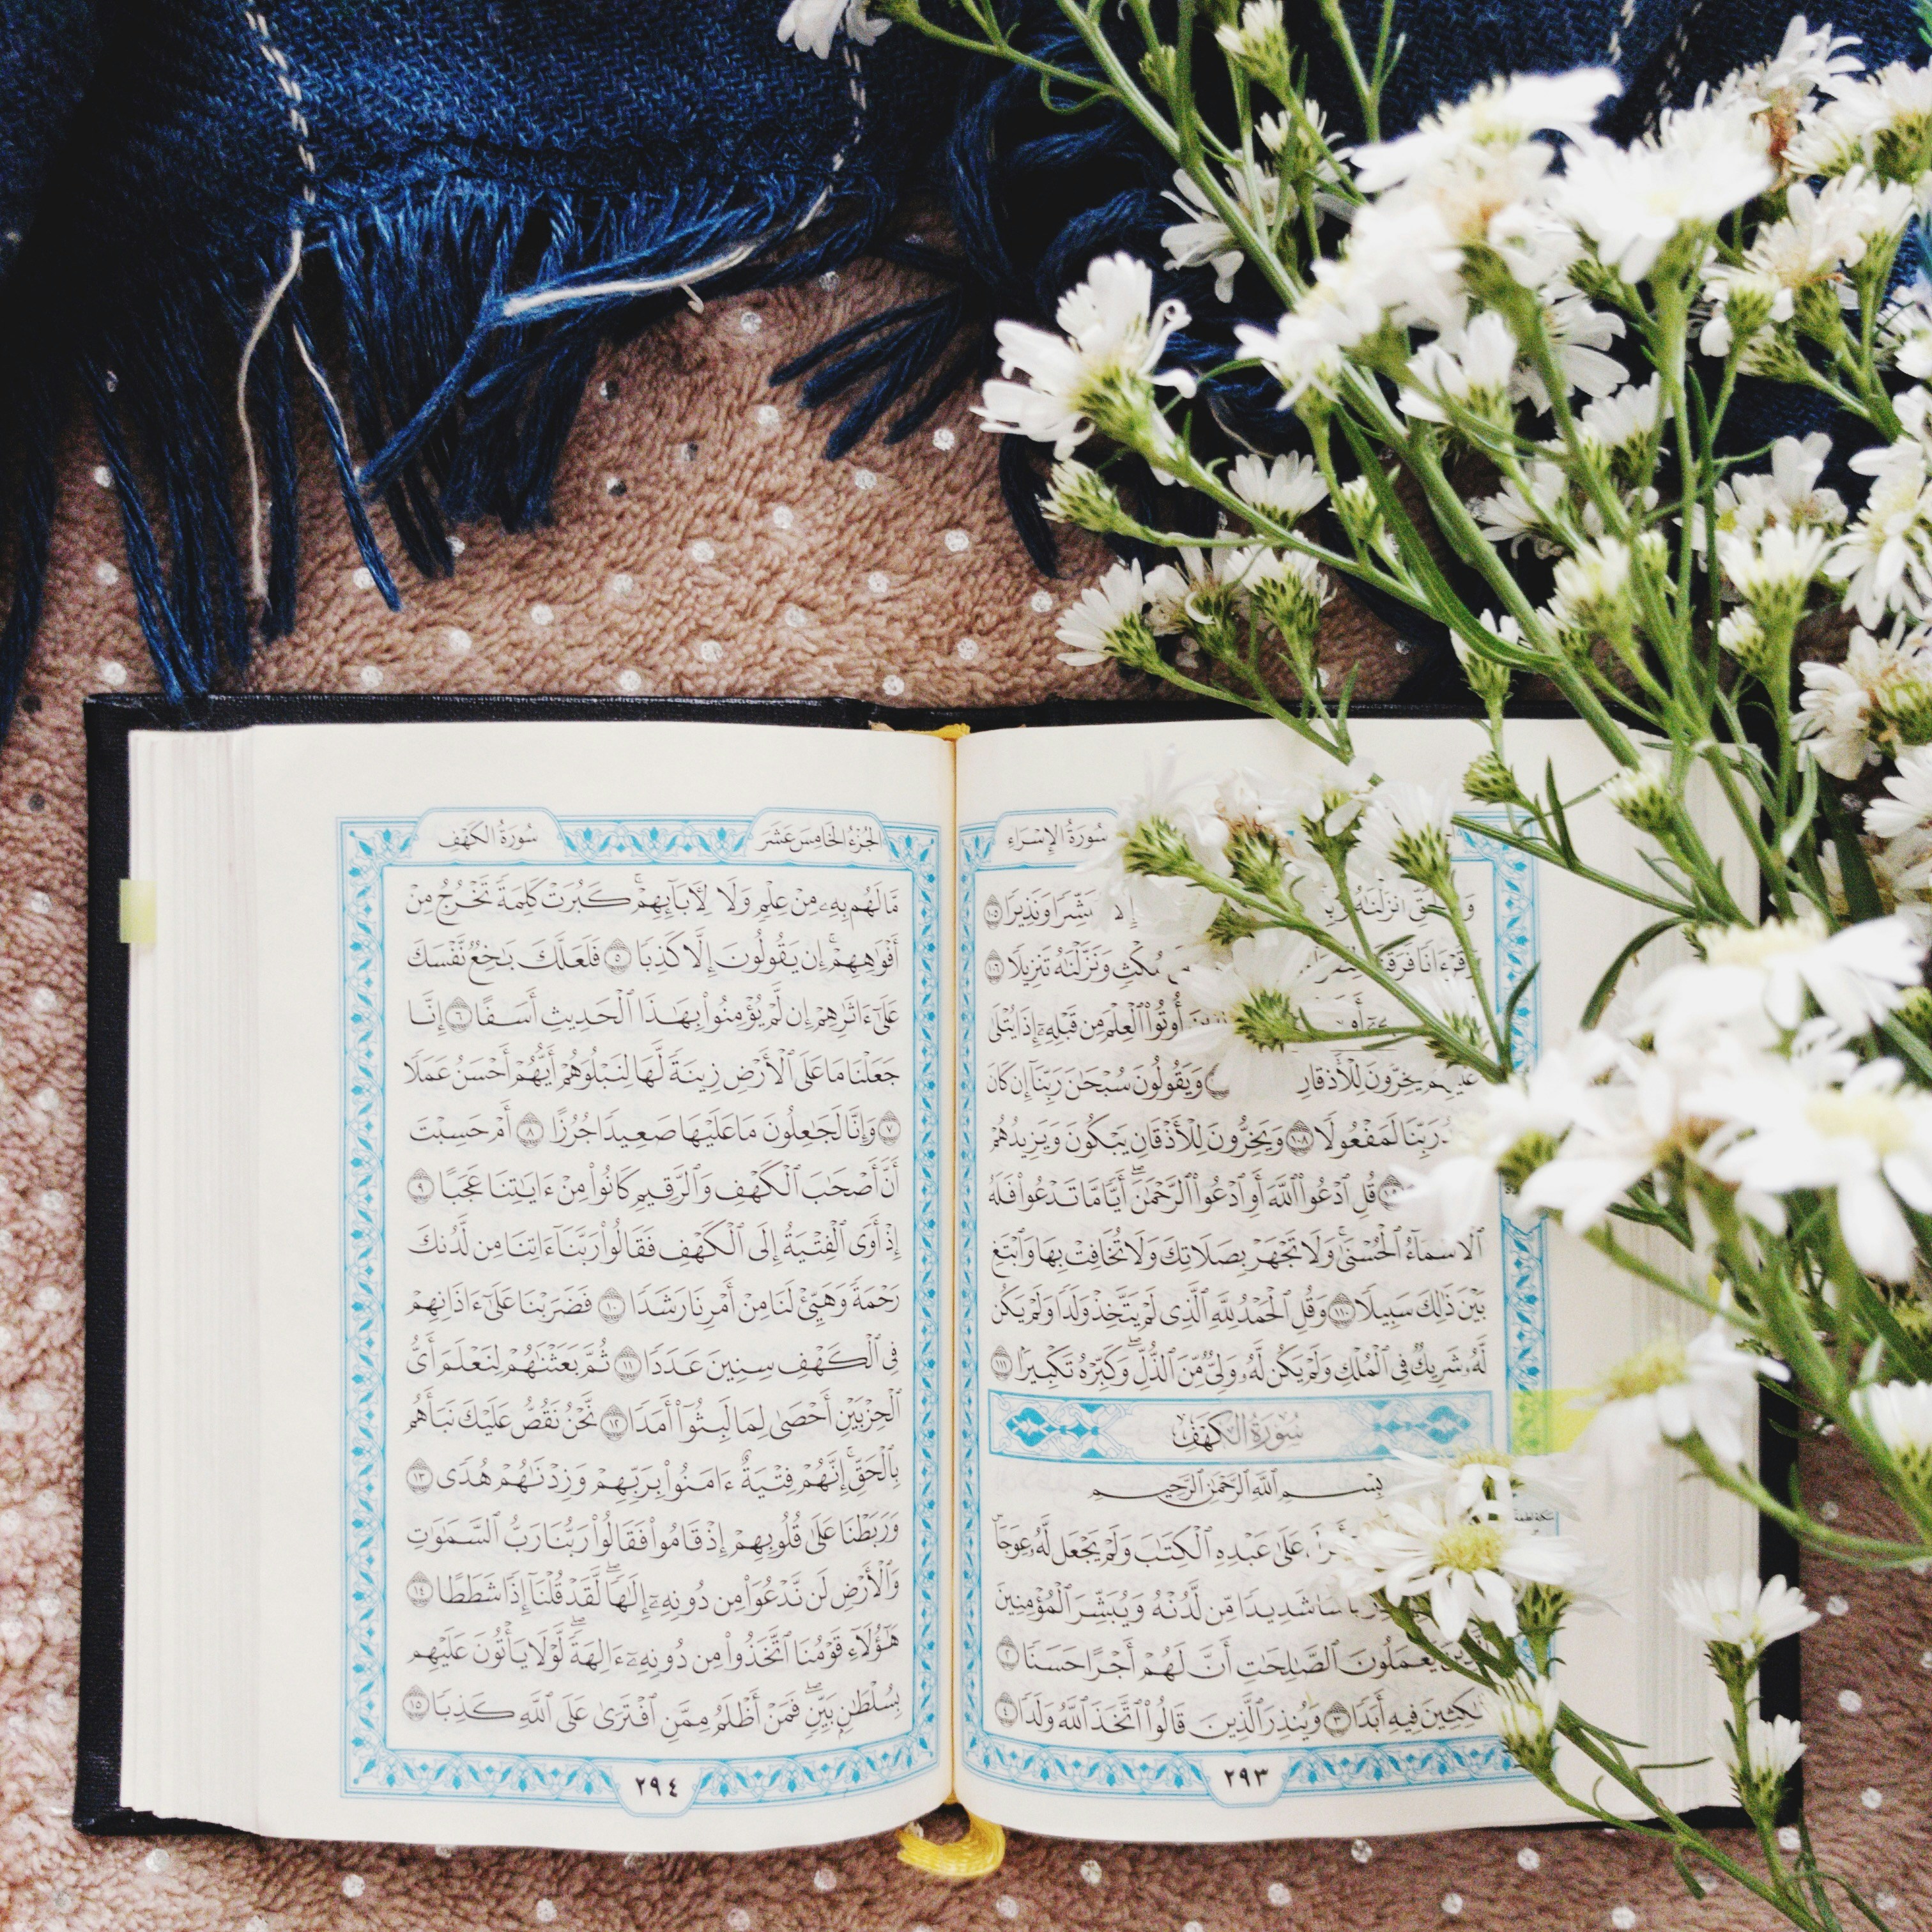 سُورَةُ الإِسْرَاءِ
أَنزَلْنَٰهُ مُبَشِّرًا وَنَذِيرًا ١٠٥
مُكْثٍ وَنَزَّلْنَٰهُ تَنزِيلًا ١٠٦
أُوتُوا۟ ٱلْعِلْمَ مِن قَبْلِهِۦٓ إِذَا يُتْلَىٰ
عَلَيْهِمْ يَخِرُّونَ لِلْأَذْقَانِ وَيَقُولُونَ سُبْحَٰنَ رَبِّنَآ إِن كَانَ
رَبِّنَا لَمَفْعُولًا ١٠٨ وَيَخِرُّونَ لِلْأَذْقَانِ يَبْكُونَ وَيَزِيدُهُمْ
قُلِ ٱدْعُوا۟ ٱللَّهَ أَوِ ٱدْعُوا۟ ٱلرَّحْمَٰنَۖ أَيًّا مَّا تَدْعُوا۟ فَلَهُ
ٱلْأَسْمَآءُ ٱلْحُسْنَىٰۚ وَلَا تَجْهَرْ بِصَلَاتِكَ وَلَا تُخَافِتْ بِهَا وَٱبْتَغِ
بَيْنَ ذَٰلِكَ سَبِيلًا ١١٠ وَقُلِ ٱلْحَمْدُ لِلَّهِ ٱلَّذِى لَمْ يَتَّخِذْ وَلَدًا وَلَمْ يَكُن
لَّهُۥ شَرِيكٌ فِى ٱلْمُلْكِ وَلَمْ يَكُن لَّهُۥ وَلِىٌّ مِّنَ ٱلذُّلِّۖ وَكَبِّرْهُ تَكْبِيرًۢا ١١١
سُورَةُ الكَهْفِ
بِسْمِ ٱللَّهِ ٱلرَّحْمَٰنِ ٱلرَّحِيمِ
عَلَىٰ عَبْدِهِ ٱلْكِتَٰبَ وَلَمْ يَجْعَل لَّهُۥ عِوَجَاۜ
بَأْسًا شَدِيدًا مِّن لَّدُنْهُ وَيُبَشِّرَ ٱلْمُؤْمِنِينَ
يَعْمَلُونَ ٱلصَّٰلِحَٰتِ أَنَّ لَهُمْ أَجْرًا حَسَنًا ٢
مَّٰكِثِينَ فِيهِ أَبَدًا ٣ وَيُنذِرَ ٱلَّذِينَ قَالُوا۟ ٱتَّخَذَ ٱللَّهُ وَلَدًا ٤
٢٩٣
الجُزْءُ الخَامِسَ عَشَرَ
سُورَةُ الكَهْفِ
مَّا لَهُم بِهِۦ مِنْ عِلْمٍ وَلَا لِـَٔابَآئِهِمْۚ كَبُرَتْ كَلِمَةً تَخْرُجُ مِنْ
أَفْوَٰهِهِمْۚ إِن يَقُولُونَ إِلَّا كَذِبًا ٥ فَلَعَلَّكَ بَٰخِعٌ نَّفْسَكَ
عَلَىٰٓ ءَاثَٰرِهِمْ إِن لَّمْ يُؤْمِنُوا۟ بِهَٰذَا ٱلْحَدِيثِ أَسَفًا ٦ إِنَّا
جَعَلْنَا مَا عَلَى ٱلْأَرْضِ زِينَةً لَّهَا لِنَبْلُوَهُمْ أَيُّهُمْ أَحْسَنُ عَمَلًا
٧ وَإِنَّا لَجَٰعِلُونَ مَا عَلَيْهَا صَعِيدًا جُرُزًا ٨ أَمْ حَسِبْتَ
أَنَّ أَصْحَٰبَ ٱلْكَهْفِ وَٱلرَّقِيمِ كَانُوا۟ مِنْ ءَايَٰتِنَا عَجَبًا ٩
إِذْ أَوَى ٱلْفِتْيَةُ إِلَى ٱلْكَهْفِ فَقَالُوا۟ رَبَّنَآ ءَاتِنَا مِن لَّدُنكَ
رَحْمَةً وَهَيِّئْ لَنَا مِنْ أَمْرِنَا رَشَدًا ١٠ فَضَرَبْنَا عَلَىٰٓ ءَاذَانِهِمْ
فِى ٱلْكَهْفِ سِنِينَ عَدَدًا ١١ ثُمَّ بَعَثْنَٰهُمْ لِنَعْلَمَ أَىُّ
ٱلْحِزْبَيْنِ أَحْصَىٰ لِمَا لَبِثُوٓا۟ أَمَدًا ١٢ نَّحْنُ نَقُصُّ عَلَيْكَ نَبَأَهُم
بِٱلْحَقِّۚ إِنَّهُمْ فِتْيَةٌ ءَامَنُوا۟ بِرَبِّهِمْ وَزِدْنَٰهُمْ هُدًى ١٣
وَرَبَطْنَا عَلَىٰ قُلُوبِهِمْ إِذْ قَامُوا۟ فَقَالُوا۟ رَبُّنَا رَبُّ ٱلسَّمَٰوَٰتِ
وَٱلْأَرْضِ لَن نَّدْعُوَا۟ مِن دُونِهِۦٓ إِلَٰهًاۖ لَّقَدْ قُلْنَآ إِذًا شَطَطًا ١٤
هَٰٓؤُلَآءِ قَوْمُنَا ٱتَّخَذُوا۟ مِن دُونِهِۦٓ ءَالِهَةًۖ لَّوْلَا يَأْتُونَ عَلَيْهِم
بِسُلْطَٰنٍۭ بَيِّنٍۖ فَمَنْ أَظْلَمُ مِمَّنِ ٱفْتَرَىٰ عَلَى ٱللَّهِ كَذِبًا ١٥
٢٩٤